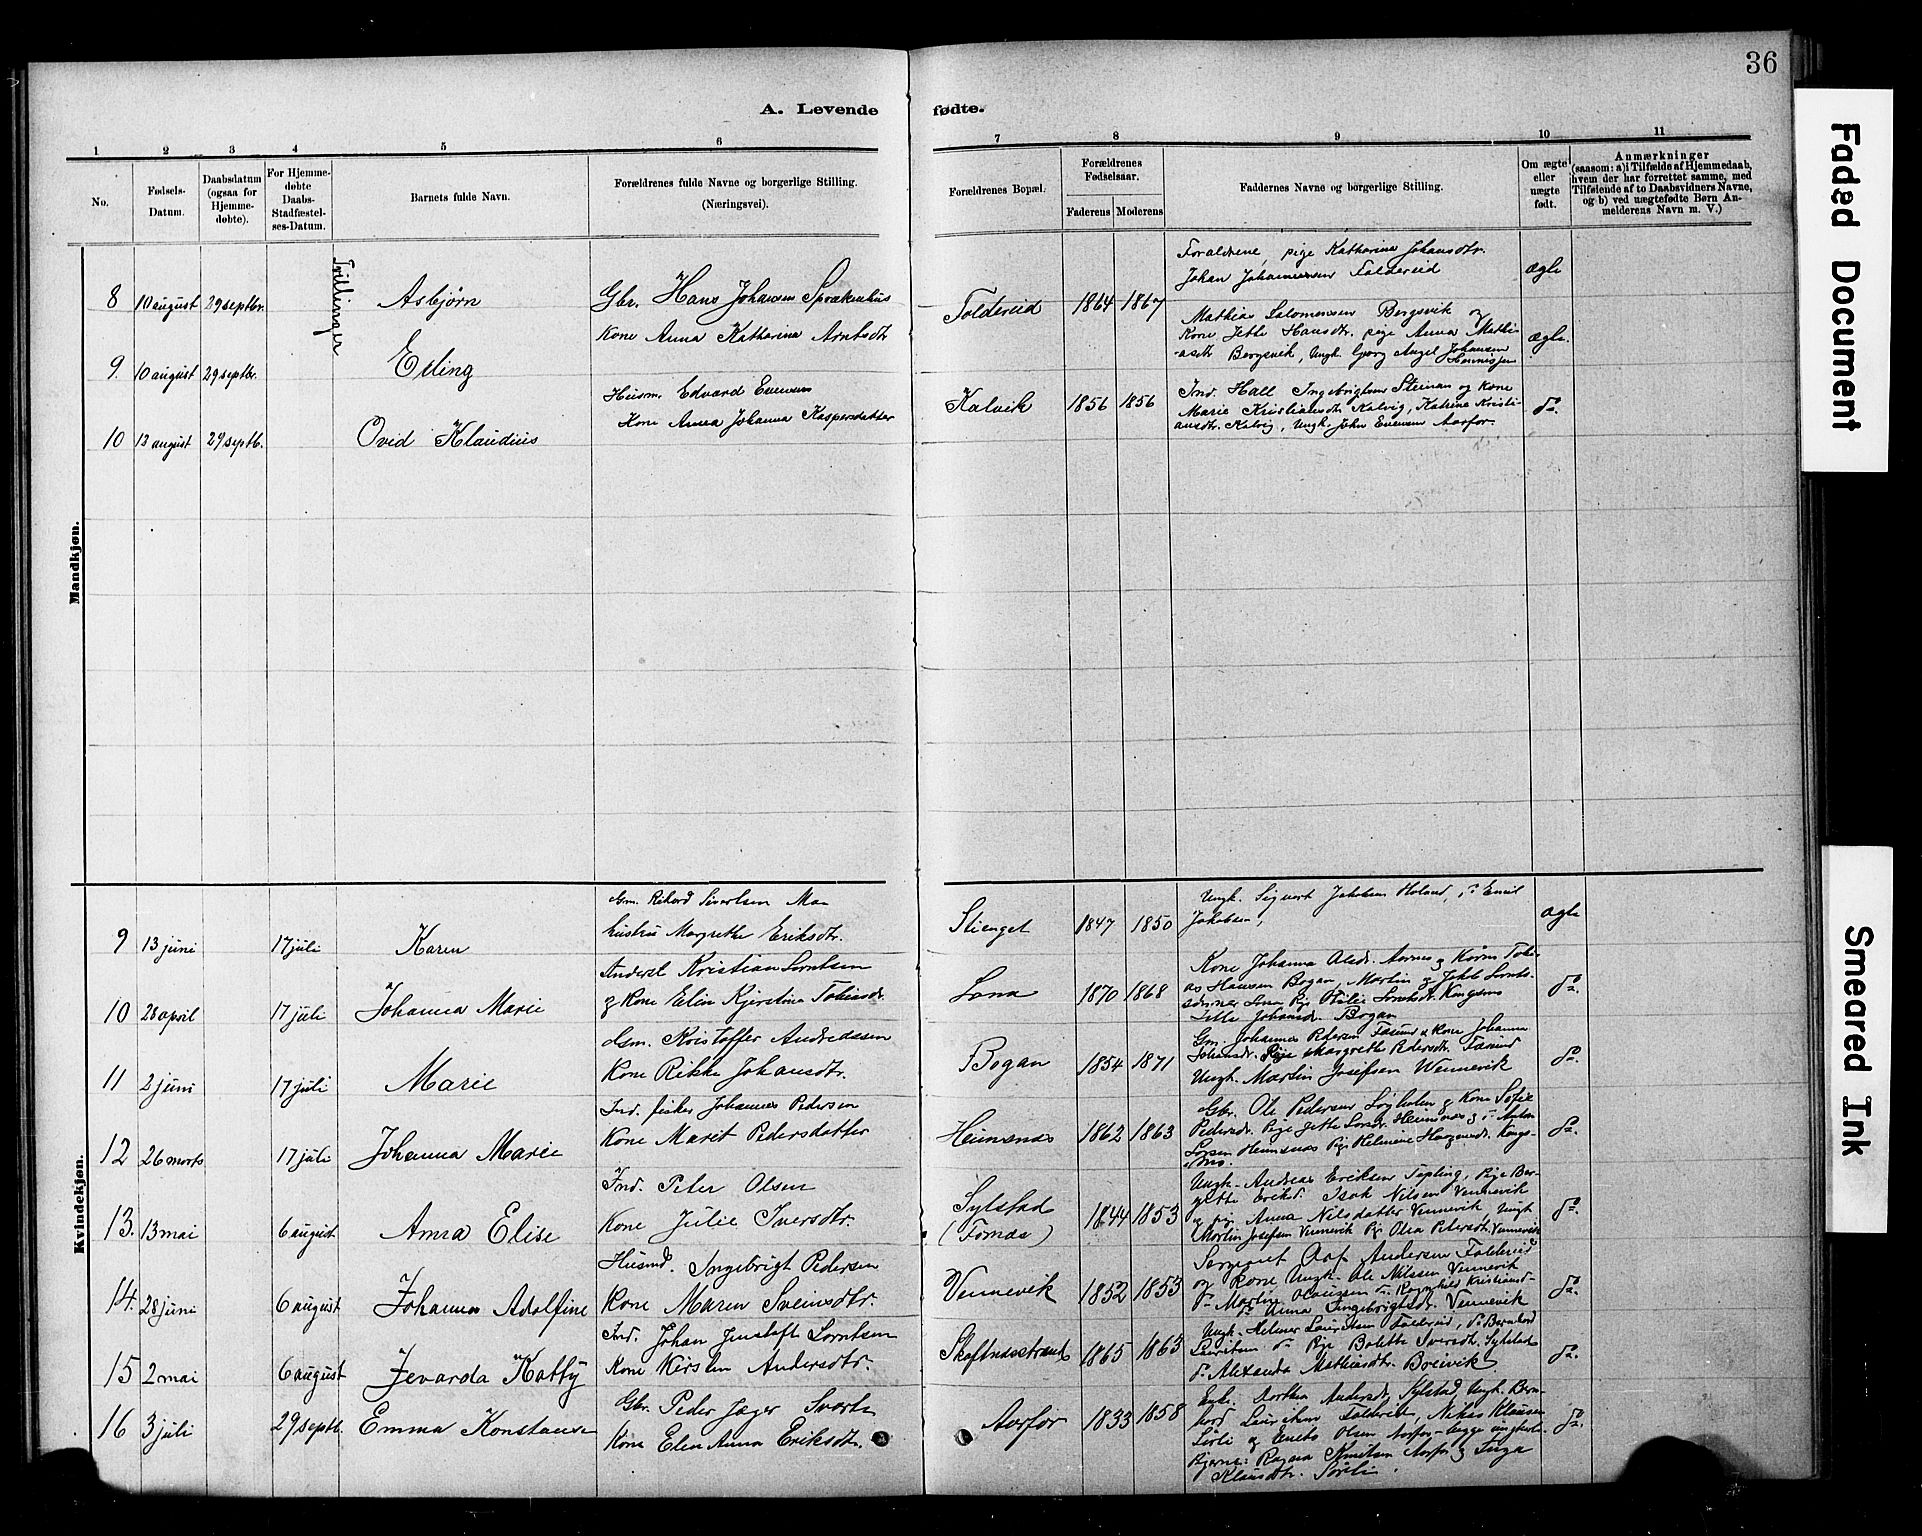 36
A. Levende fødte.
1 2 3 4 5 6 7 8 9 10 11
No.
Fødsels-Datum.
Daabsdatum (ogsaa for Hjemme-døbte).
For Hjemme-døbte Daabs-Stadfæstel-ses-Datum.
Barnets fulde Navn.
Forældrenes fulde Navne og borgerlige Stilling.
(Næringsvei).
Forældrenes Bopæl.
Forældrenes Fødselsaar.
Faderens Moderens
Faddernes Navne og borgerlige Stilling.
Om ægte eller uægte født.
Anmærkninger
(saasom: a) i Tilfælde af Hjemmedaab,
hvem der har forrettet samme, med
Tilføiende af to Daabsvidners Navne,
og b) ved uægtefødte Børn An-
melderens Navn m. V.)
Mandkjøn.
Tvillinger
8 10 august 29 septbr. Asbjørn
Gbr. Hans Johansen
Kone Anna Katharina Arntsdtr
Foldereid 1864 1867
Forældrene, pige Katharina Johansdtr.
Johan Johannesen Foldereid
ægte
9. 10 august 29 septbr. Erling
Mathias Salomonsen Bergsvik og
Kone Jette Hansdtr. pige Anna Mathi-
asdtr Bergsvik, Ungk. Georg Angel Johansen
ægte.
10 13 august 29 septb. Ovid Klaudius
Husm. Edvard Evensen
Kone Anna Johanna Kaspersdatter
Kalvik 1856 1856
Ind. Hall Ingebrigtsen Steinan og Kone
Marie Kristiansdtr Kalvig, Katrine Kristi-
ansdtr. Kalvig, Ungk. John Evensen Aarfor.
do.
Kvindekjøn.
9 13 juni 17 juli Karen
Gm. Rikard Sivertsen
hustru Margrethe Eriksdtr.
Stienget 1847 1850
Ungk. Sigvart Jakobsen Holand, do Emil
Jakobsen,
ægte
10 28 april 17 juli Johanna Marie
Kristian Lorntsen
og Kone Elen Kjerstina Tobiasdr.
1870 1868
Kone Johanna Olsdr. Aarnes og Karen Tobi-
as Hansen Bogan, Martin og
Pige Otilie Lorntsdr. Kongsmo
Jette Johansdr. Bogan
do.
11 2 juni 17 juli Marie
Kristoffer Andreassen
Kone Rikke Johansdtr.
Bogan 1854 1871
Gm. Johannes Pedersen Fasund & Kone Johanna
Johansdr. Pige Margrethe Pedersdtr. Fasund
Ungk. Martin Josefsen Vennevik
do.
12 26 marts 17 juli Johanna Marie
Ind. fisker Johannes Pedersen
Kone Marit Pedersdatter
Heimsnæs 1862 1863
Gbr. Ole Pedersen og Kone Sofie
Pedersdr. Pige Jette Heimsnæs og do Anton
Heimsnæs Pige Helmine Haagensdr. Kongs-
mo.
do.
13. 13 mai 6 august Anna Elise
Ind. Peter Olsen
Kone Julie Iversdtr.
Sylstad
(Fornæs)
1844 1853
Ungk. Andreas Eriksen Tepling, Pige Ber-
gitte Eriksd. Isak Nilsen Vennevik
og pige Anna Nilsdatter Vennevik Ungk
Martin Josefsen Vennevik Pige Olea Petersdtr. Vennevik
do.
14. 28 juni 6 august Johanna Adolfine
Husmd. Ingebrigt Pedersen
Kone Maren Sveinsdtr.
Vennevik 1852 1853
Sergeant Andersen Foldereid
og Kone Ungk. Ole Nilssen Vennevik
do Martin Olaussen do Ragnhild Kristiansd-
do Anna Ingebrigtsdr. Vennevik
do.
15 2 mai 6 august Jevarda Katty
Ind. Johan Lorntsen
Kone Kirsten Andersdtr.
Skaftnæsstrand 1865 1863
Ungk. Helmer Lauritsen Foldereid, do Bernhard
Lauritsen do Pige Bolette Iversdtr. Sylstad
do Alexandra Mathiasdtr. Breivik
do.
16 3 juli 29 septb. Emma Konstanse
Gbr. Peder Jæger
Kone Elen Anna Eriksdtr.
Aarfor 1833 1858
Enke Dorthea Andersdr. Sylstad, Ungk. Bern-
hard Lauritsen Foldereid, Nikas Klausen
og Olsen Aarfor begge ungkarle
Aarfor og Inga
Klausdtr.
do.
Faded Document
Smeared Ink